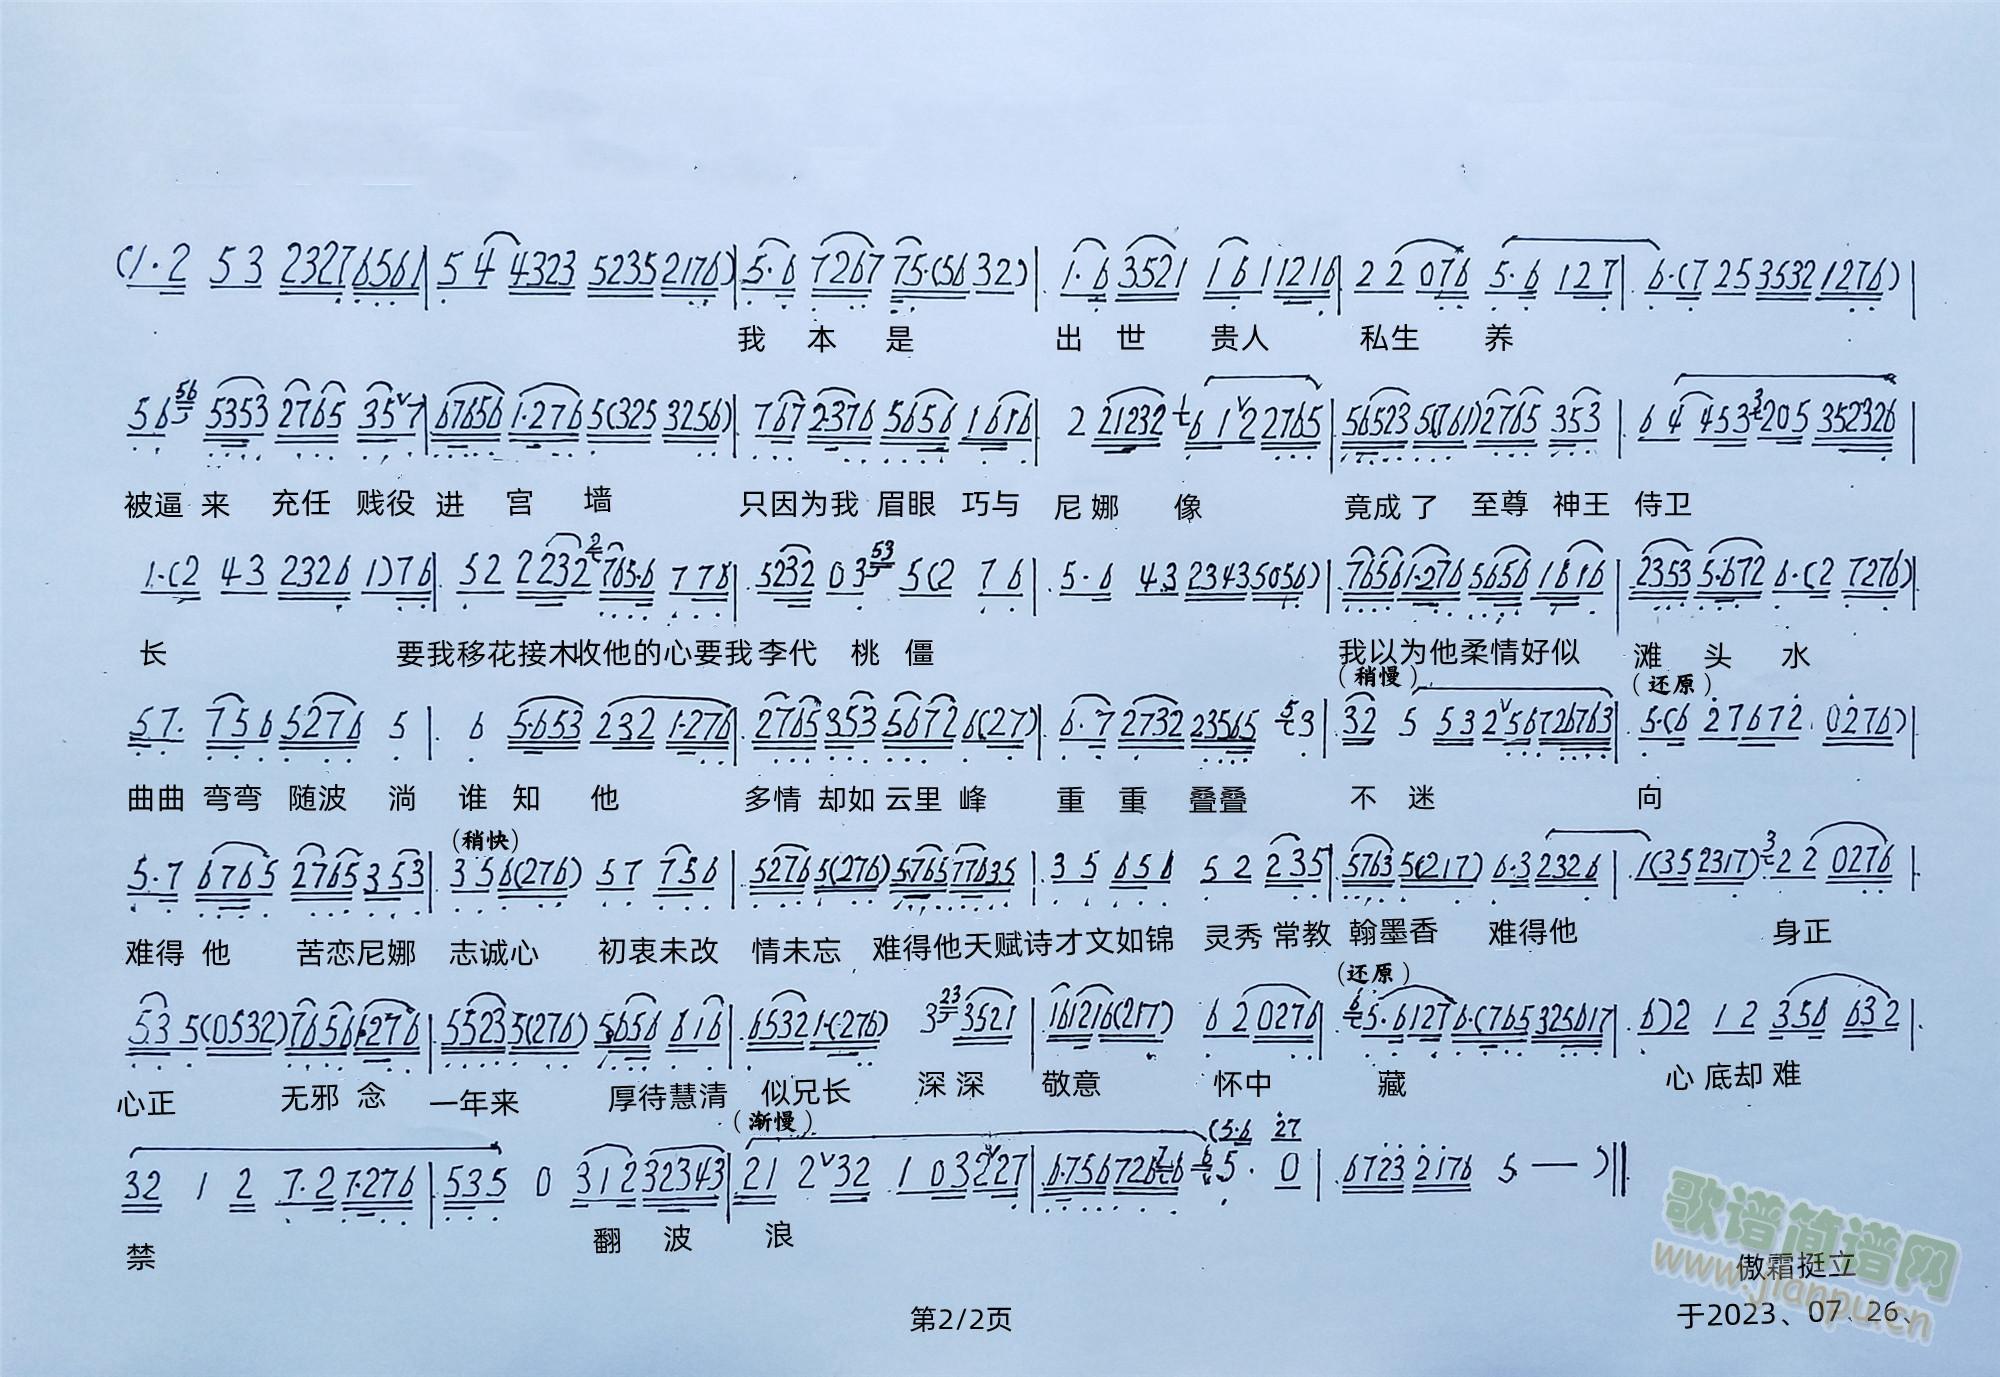 (1·2 53 23276561 | 54 4323 52352176) | 5·6 7267 75·(56 32) | 1·6 3521 1611216 | 22 076 5·6 127 | 6·(7 25 3532 1276) |
我 本 是 出 世 贵人 私生 养
56 56 5353 2765 35˅7 | 67656 1·276 5(325 3256) | 767 2376 5656 1616 | 2 21232 1 61˅2 2765 | 56523 5(761) 2765 353 | 64 453 3 205 352326 |
被逼 来 充任 贱役 进 宫 墙 只因为我 眉眼 巧与 尼娜 像 竟成了 至尊 神王 侍卫
1·(2 43 2326 1)76 | 52 2232 2 765·6 776 | 5232 03 53 5(2 76 | 5·6 43 23435056) | 7656 1·276 5656 1616 | 2353 5·672 6·(2 7276) |
长 要我移花接木收他的心要我李代 桃 僵 我以为他柔情好似 滩 头 水
(稍慢) (还原)
57· 756 5276 5 | 6 5·653 232 1·276 | 2765 353 5672 6(27) | 6·7 2732 23565 5 3 | 32 5 53 2˅56726763 | 5·(6 27672 0276) |
曲曲 弯弯 随波 淌 谁 知 他 多情 却如 云里 峰 重 重 叠叠 不 迷 向
(稍快)
5·7 6765 2765 353 | 356(276) 57 756 | 5276 5(276) 5765 77635 | 35 656 52 235 | 5763 5(217) 6·3 2326 | 1(35 2317) 3 22 0276 |
难得 他 苦恋尼娜 志诚心 初衷未改 情未忘 难得他天赋诗才文如锦 灵秀 常教 翰墨香 难得他 身正
(还原)
53 5(0532) 7656 1276 | 5523 5(276) 5656 616 | 6532 1·(276) 3 23 3521 | 161216(217) 62 0276 | 6 5·6127 6·(765 325617 | 6)2 12 356 632 |
心正 无邪 念 一年来 厚待慧清 似兄长 深深 敬意 怀中 藏 心 底却 难
(渐慢)
32 1 2 7·2 7·276 | 535 0 312 32343 | 21 2˅32 1 03 2˅27 | 6·756 726 7 6 6 5· 0 (5·6 27 | 6723 2176 5 — ) ||
禁 翻 波 浪
傲霜挺立
于2023、07、26、
第2/2页
歌谱简谱网
www.jianpu.cn